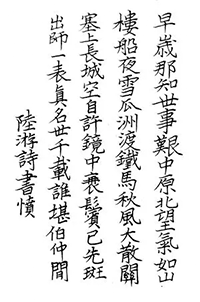 早歲那知世事艱中原北望氣如山
樓船夜雪瓜洲渡鐵馬秋風大散關
塞上長城空自許鏡中衰鬢已先斑
出師一表真名世千載誰堪伯仲間
陸游詩書憤